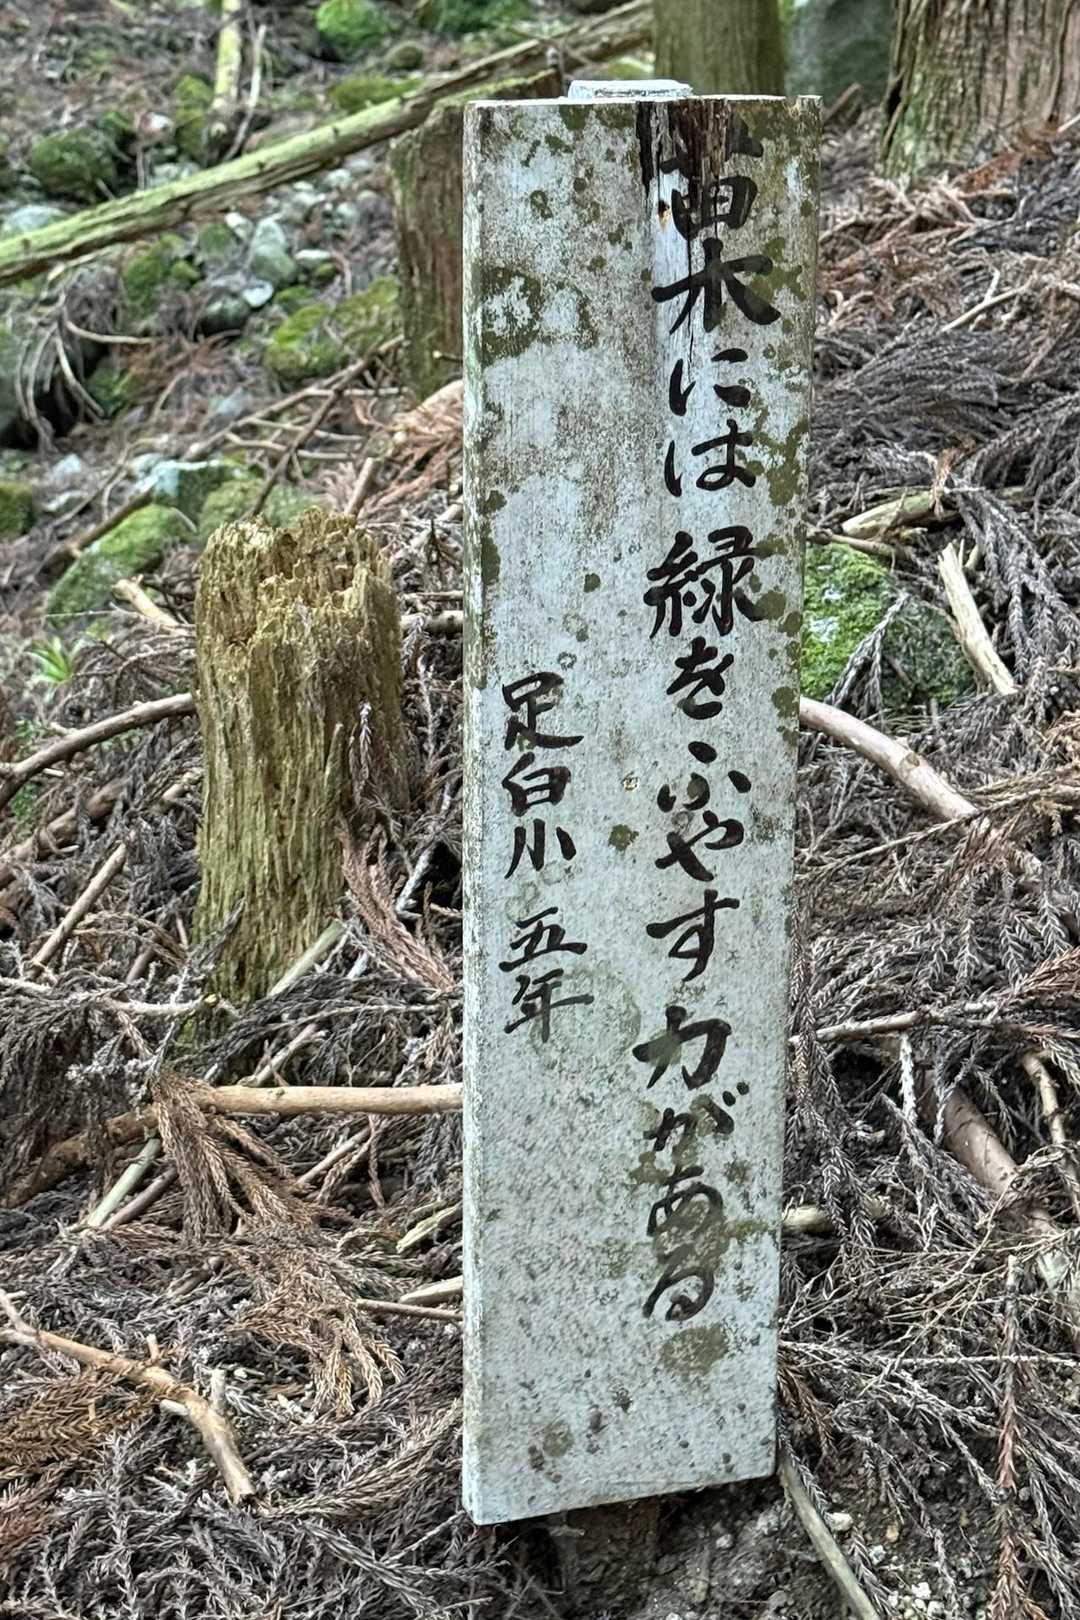 苗木には 緑を ふやす 力がある
足臼小 五年